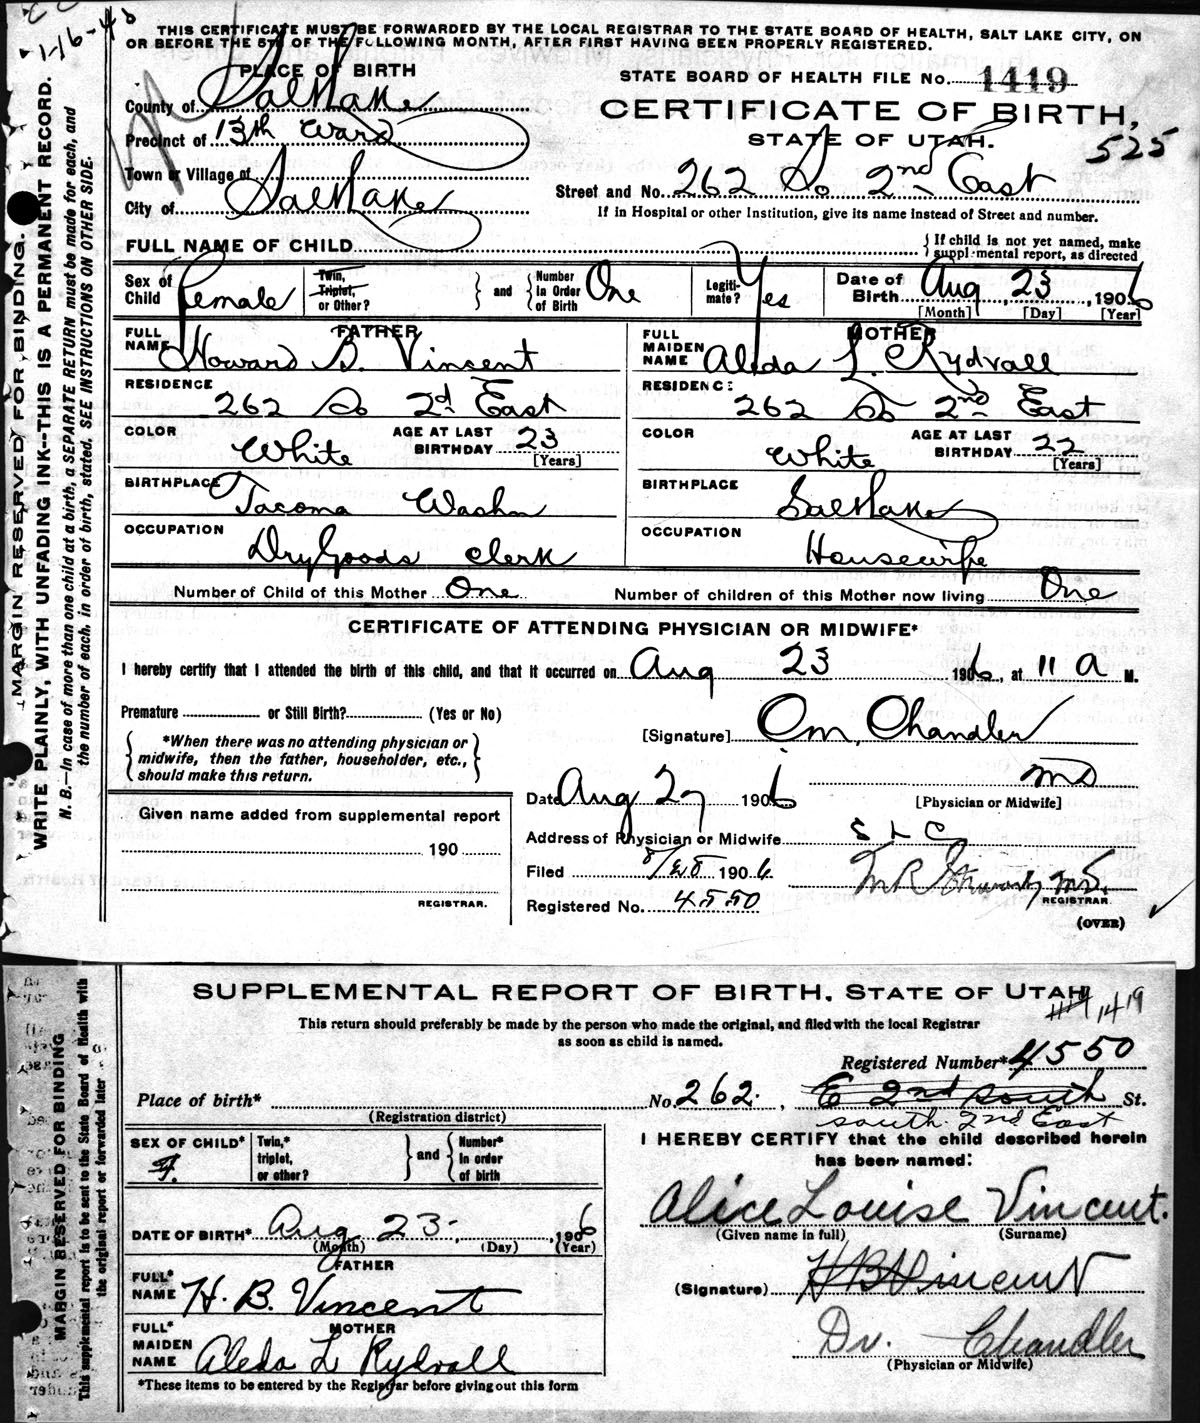 1-16-43
THIS CERTIFICATE MUST BE FORWARDED BY THE LOCAL REGISTRAR TO THE STATE BOARD OF HEALTH, SALT LAKE CITY, ON
OR BEFORE THE 5TH OF THE FOLLOWING MONTH, AFTER FIRST HAVING BEEN PROPERLY REGISTERED.
PLACE OF BIRTH
STATE BOARD OF HEALTH FILE No. 1419
County of Salt Lake
CERTIFICATE OF BIRTH,
Precinct of 13th Ward
STATE OF UTAH.
525
Town or Village of
Street and No. 262 So 2nd East
City of Salt Lake
If in Hospital or other Institution, give its name instead of Street and number.
FULL NAME OF CHILD
{ If child is not yet named, make supplemental report, as directed
Sex of Child Female
Twin, Triplet, or Other? } and { Number in Order of Birth One
Legitimate? Yes
Date of Birth Aug, 23, 1906
[Month] [Day] [Year]
FATHER
FULL NAME Howard B. Vincent
RESIDENCE 262 So 2d East
COLOR White AGE AT LAST BIRTHDAY 23 [Years]
BIRTHPLACE Tacoma Washn
OCCUPATION Dry Goods Clerk
MOTHER
FULL MAIDEN NAME Aleda L. Rydvall
RESIDENCE 262 So 2nd East
COLOR White AGE AT LAST BIRTHDAY 22 [Years]
BIRTHPLACE Salt Lake
OCCUPATION Housewife
Number of Child of this Mother One Number of children of this Mother now living One
CERTIFICATE OF ATTENDING PHYSICIAN OR MIDWIFE*
I hereby certify that I attended the birth of this child, and that it occurred on Aug 23 1906, at 11 a M.
Premature or Still Birth? (Yes or No)
[Signature] Om, Chandler
{ *When there was no attending physician or midwife, then the father, householder, etc., should make this return. }
MD
Date Aug 27 1906
[Physician or Midwife]
Given name added from supplemental report
190
REGISTRAR.
Address of Physician or Midwife S L C
Filed 8/28 1906
M.D.
REGISTRAR.
Registered No. 4550
(OVER)
MARGIN RESERVED FOR BINDING.
WRITE PLAINLY, WITH UNFADING INK--THIS IS A PERMANENT RECORD.
N. B.—In case of more than one child at a birth, a SEPARATE RETURN must be made for each, and
the number of each, in order of birth, stated. SEE INSTRUCTIONS ON OTHER SIDE.
SUPPLEMENTAL REPORT OF BIRTH, STATE OF UTAH
1419
This return should preferably be made by the person who made the original, and filed with the local Registrar
as soon as child is named.
Registered Number* 4550
Place of birth*
(Registration district)
No. 262, E 2nd South St.
South 2nd East
SEX OF CHILD* F. Twin,* triplet, or other? } and { Number* in order of birth
I HEREBY CERTIFY that the child described herein
has been named:
Alice Louise Vincent.
(Given name in full) (Surname)
DATE OF BIRTH* Aug 23, 1906
(Month) (Day) (Year)
(Signature) H B Vincent
FATHER
FULL* NAME H. B. Vincent
Dr. Chandler
(Physician or Midwife)
MOTHER
FULL* MAIDEN NAME Aleda L Rydvall
*These items to be entered by the Registrar before giving out this form
MARGIN RESERVED FOR BINDING
This supplemental report is to be sent to the State Board of Health with
the original report or forwarded later